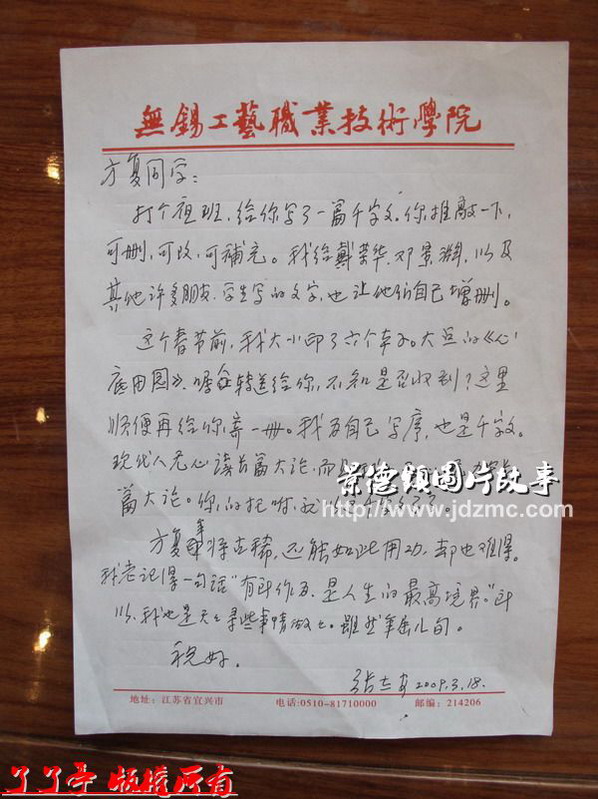 無錫工藝職業技術學院
方复同学：
打个夜班，给你写了一篇千字文。你推敲一下，
可删，可改，可補充。我给戴荣华、邓景渊，以及
其他许多朋友、学生写的文字，也让他们自己增删。
这个春节前，我大小印了六个本子。大点的《心
底田园》，嘱 转送给你，不知是否收到？这里
顺便再给你寄一册。我为自己写序，也是千字文。
现代人无心读长篇大论，而
篇大论。你的托咐，
方复年将古稀，还能如此用功，却也难得。
我老记得一句话"有所作为，是人生的最高境界。"所
以，我也是天天 某些事情做做。虽然年岳八旬。
祝好。
2009.3.18.
地址：江苏省宜兴市 电话:0510-81710000 邮编：214206
景德镇图片故事
http://www.jdzmc.com/
了了亭 版权所有